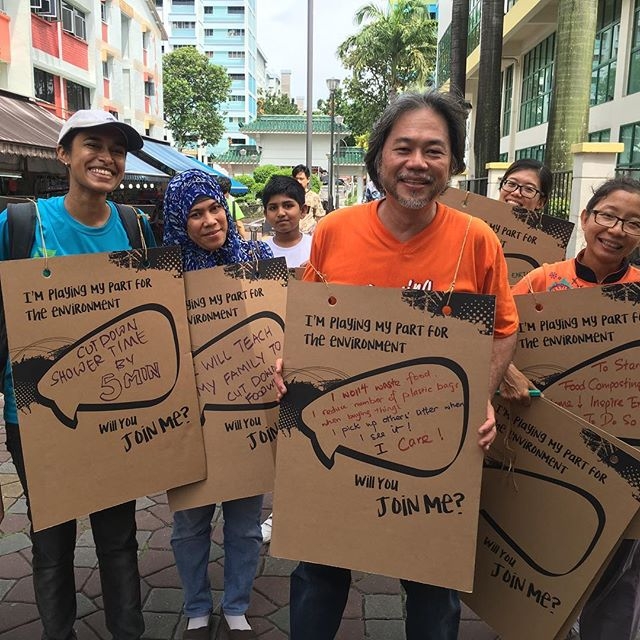 I'm playing my part for
The environment
CUTDOWN
SHOWER TIME
BY
5 MIN
Will you
JOIN ME?
ying my part for
vironment
I WILL TEACH
MY FAMILY TO
CUT DOWN
Will you
JOIN
I'm playing my part for
The environment
I won't waste food.
I reduce number of plastic bags
when buying things!
I pick up others' litter when
I see it!
I Care!
Will you
JOIN ME?
I'm playing my part for
The environment
To Star
Food Composting
me ↓ Inspire
To Do So
I'm playing my part for
The environment
Will you
JOIN ME?